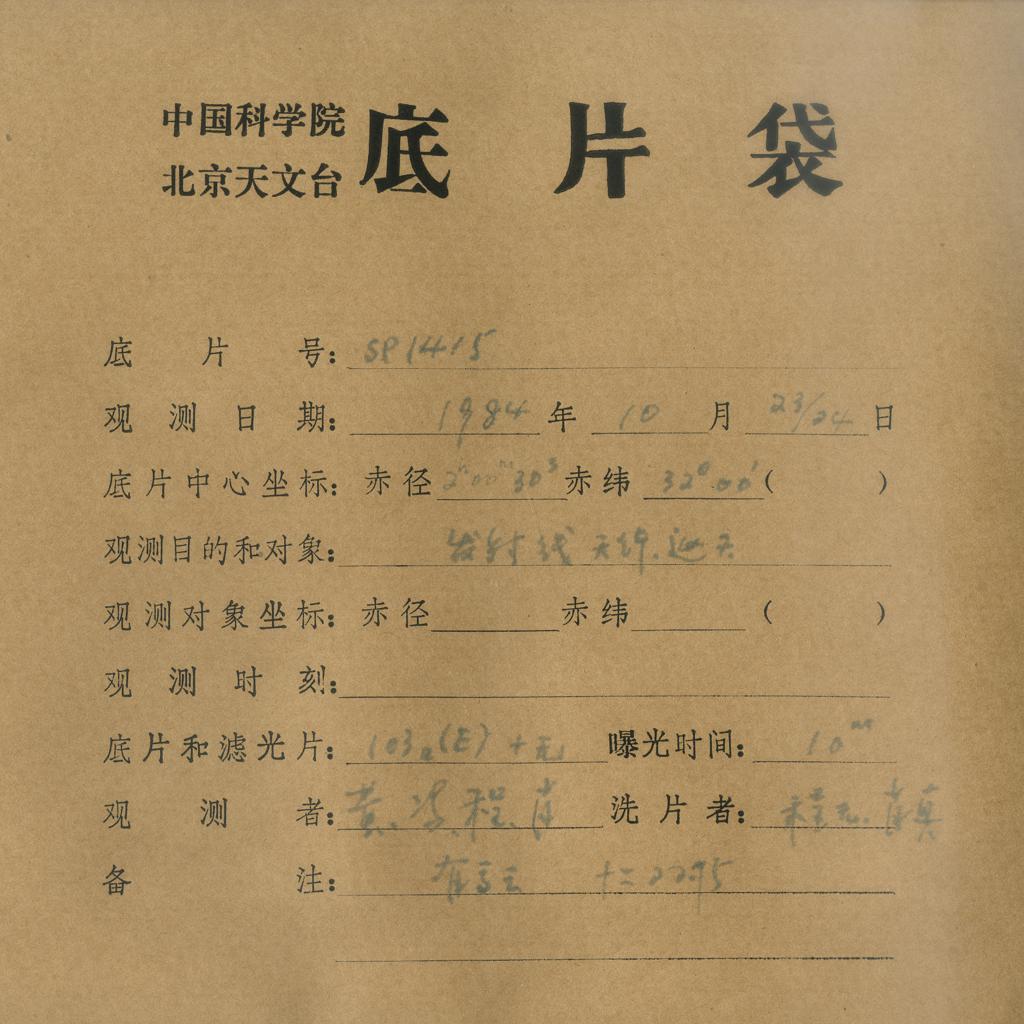 中国科学院
北京天文台
底片袋
底片号：SP1415
观测日期：1984年10月23/24日
底片中心坐标：赤径2ʰ00ᵐ30ˢ赤纬32°00′( )
观测目的和对象：发射线天体.巡天
观测对象坐标：赤径 赤纬 ( )
观测时刻：
底片和滤光片：103a(E)+无 曝光时间：10ᵐ
观测者：黄、程、肖 洗片者：程
备注：有高云